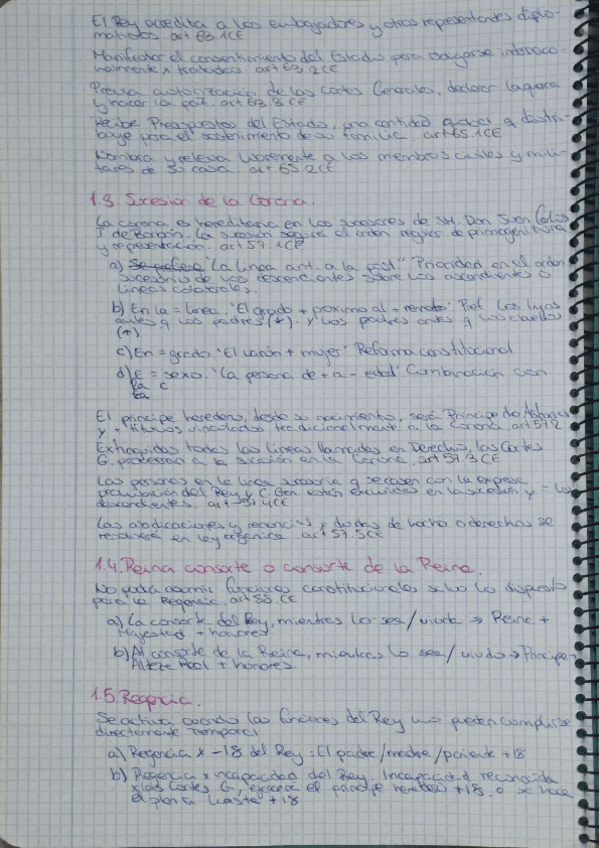 El Rey acredita a los embajadores y otros representantes diplo-
máticos art 63.1CE
Manifestar el consentimiento del Estado para obligarse internacio-
nalmente x tratados. art 63.2CE
Previa autorización de las Cortes Generales, declarar la guerra
y hacer la paz. art 63.3 CE
Recibe Presupuestos del Estado, una cantidad global q distri-
buye para el sostenimiento de su familia. art 65.1CE
Nombra y releva libremente a los miembros civiles y mili-
tares de su casa. art 65.2CE
1.3 Sucesión de la Corona.
La corona es hereditaria en los sucesores de S.M. Don Juan Carlos
I de Borbón. La sucesión seguirá el orden regular de primogenitura
y representación. art 57.1CE
a) "La línea ant. a la post." Prioridad en el orden
sucesorio de los descendientes sobre los ascendientes o
líneas colaterales.
b) En la = línea. "El grado + próximo al + remoto". Pref. los hijos
antes q los padres (+) y los padres antes q los abuelos
(+)
c) En = grado. "El varón + mujer" Reforma constitucional
d) = sexo. "La persona de + a - edad" Combinación con
El príncipe heredero, desde su nacimiento, será Príncipe de Asturias
y + títulos vinculados tradicionalmente a la Corona. art 57.2
Extinguidas todas las líneas llamadas en Derecho, las Cortes
G. proveerán a la sucesión en la Corona. art 57.3 CE
Las personas en la línea sucesoria q se casen con la expresa
prohibición del Rey y C. Gen están excluidas en la sucesión y = los
descendientes. art 57.4CE
Las abdicaciones y renuncias y dudas de hecho o derechos se
resolverá en ley orgánica. art 57.5CE
1.4. Reina consorte o consorte de la Reina.
No podrá asumir funciones constitucionales salvo lo dispuesto
para la Regencia. art 58 CE
a) La consorte del Rey, mientras lo sea/viuda → Reina +
Majestad + honores
b) Al consorte de la Reina, mientras lo sea/viudo → Príncipe +
Alteza Real + honores.
1.5. Regencia.
Se activa cuando las funciones del Rey no pueden cumplirse
directamente
a) Regencia x -18 del Rey: El padre/madre/pariente +18
b) Regencia x incapacidad del Rey. Incapacidad reconocida
x las Cortes G, ejerce el príncipe heredero +18, o se hace
hasta +18